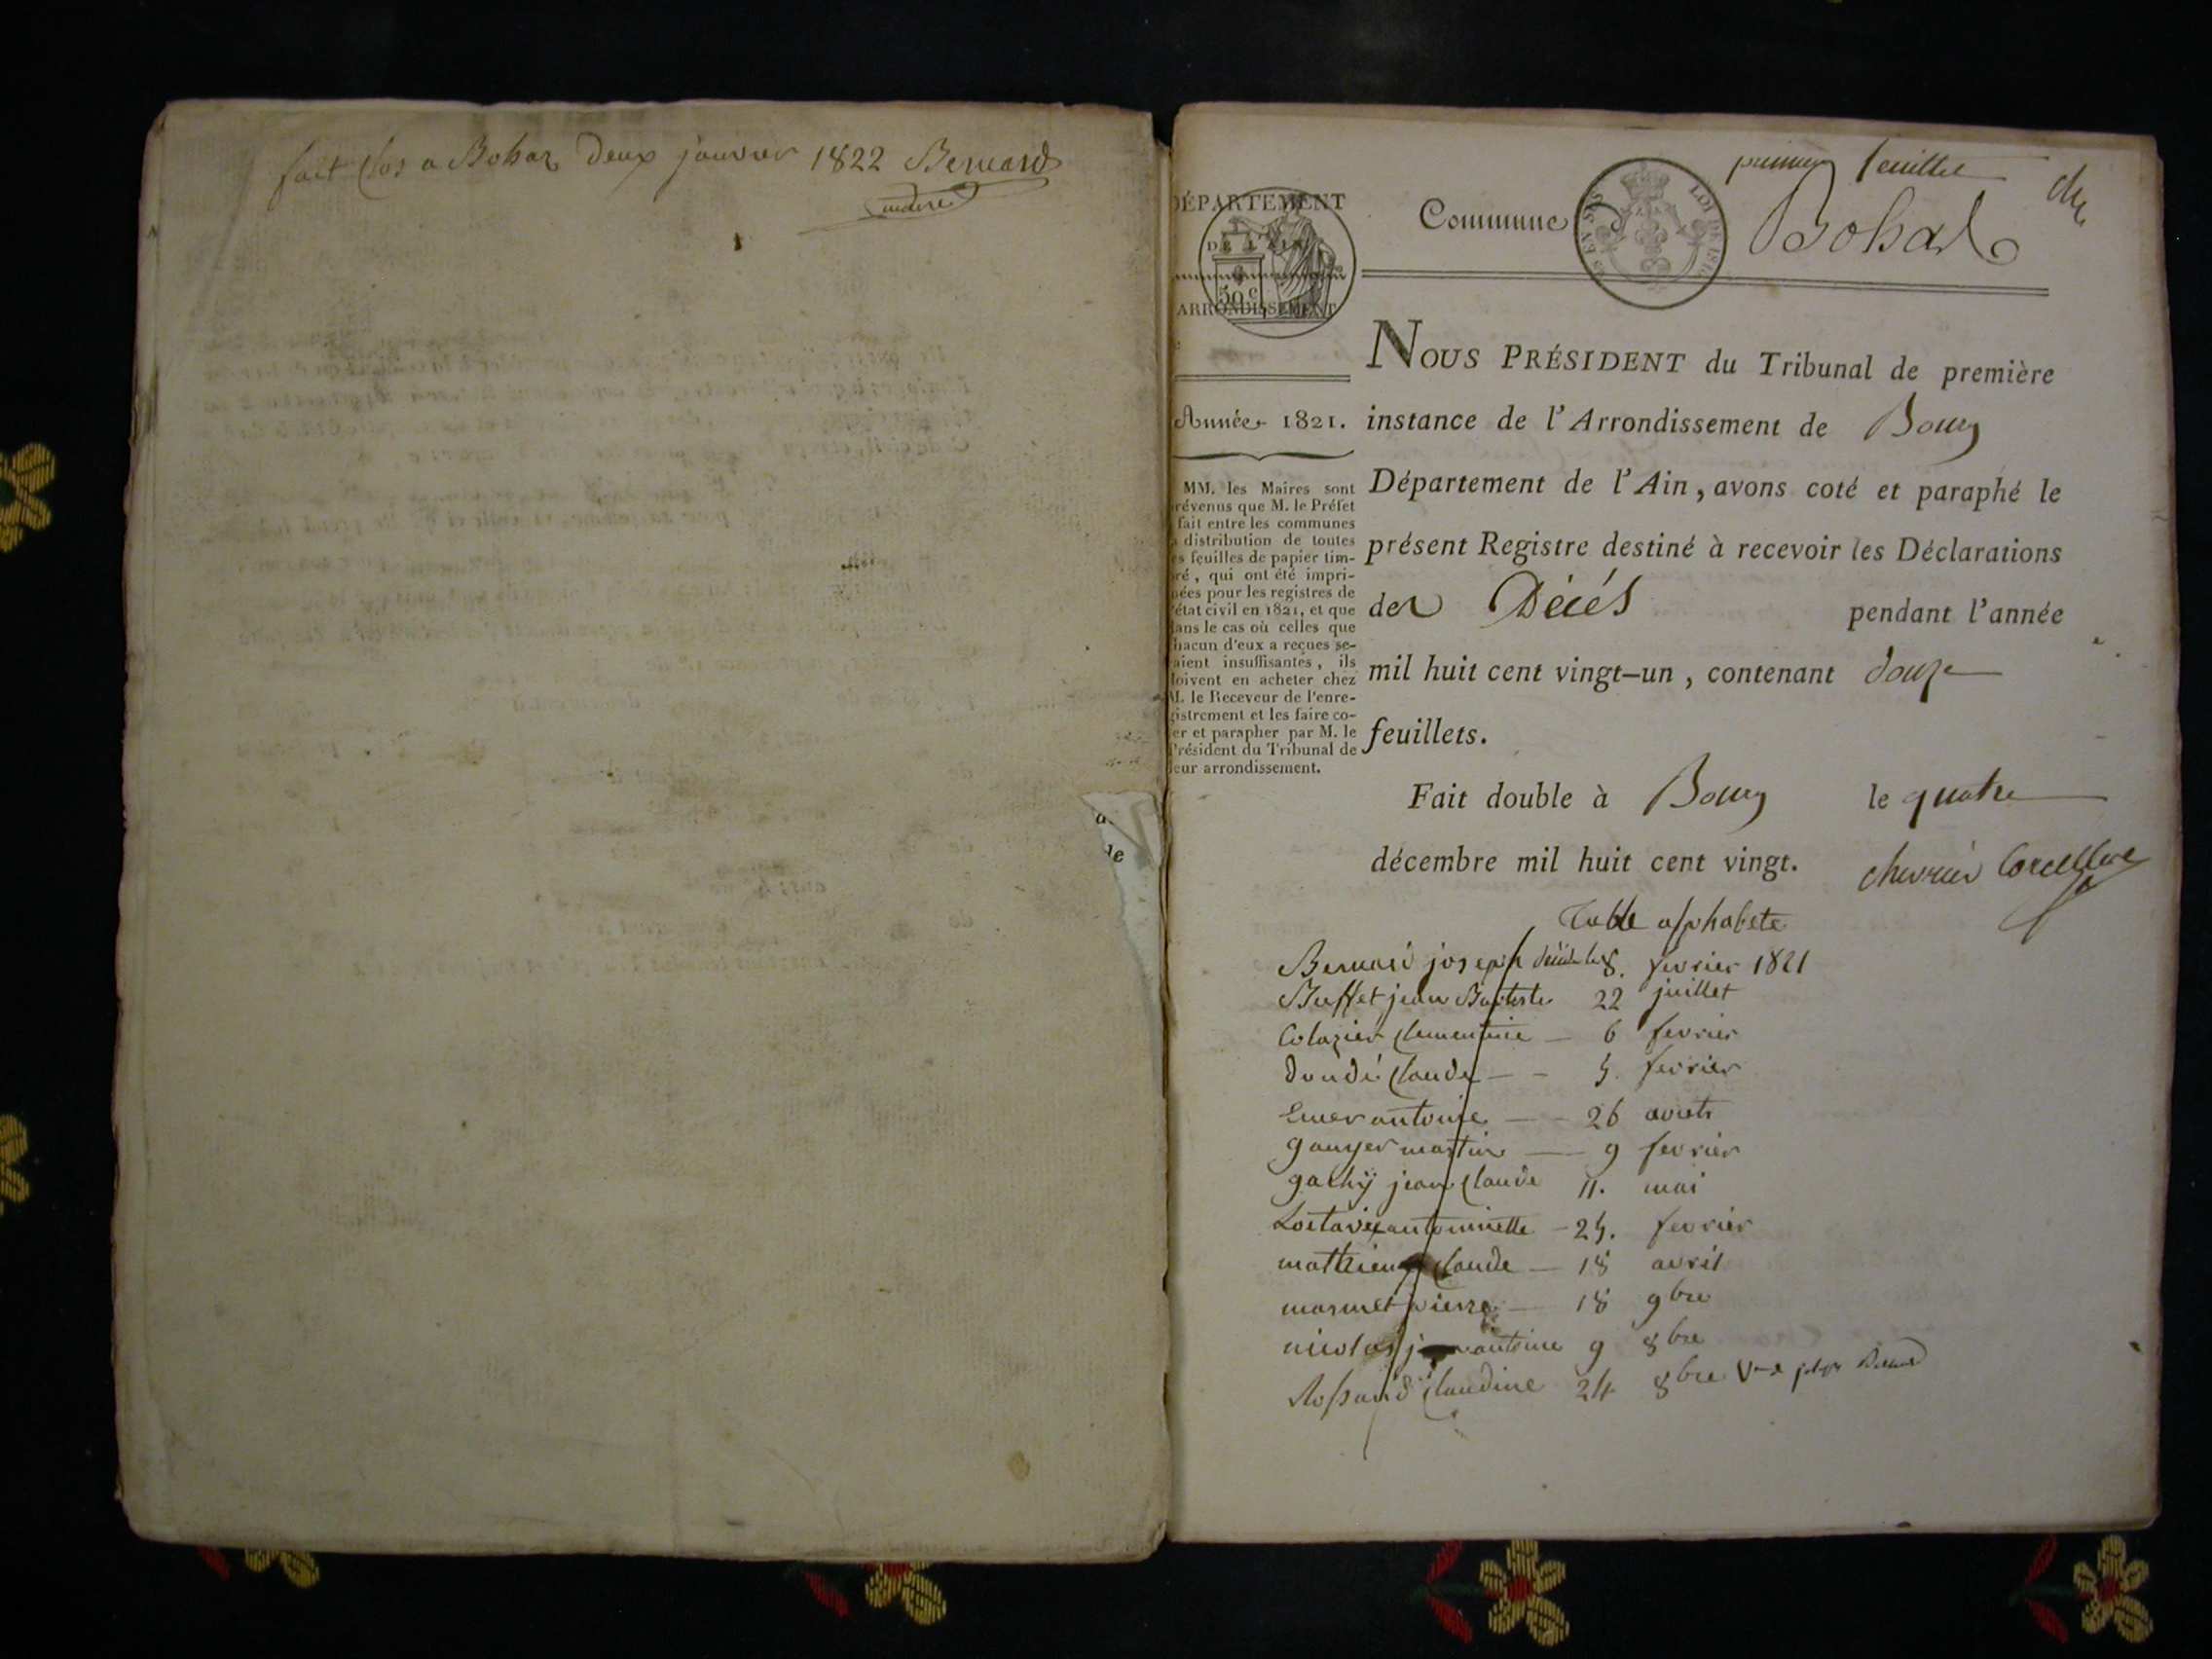 fait clos a Bohas deux janvier 1822 Bernard
maire
premier feuillet
DÉPARTEMENT
DE L'AIN
50 c
ARRONDISSEMENT
Commune
LOI DE 1816
Bohas
Année 1821.
MM. les Maires sont
révenus que M. le Préfet
fait entre les communes
a distribution de toutes
es feuilles de papier tim-
ré, qui ont été impri-
ées pour les registres de
'état civil en 1821, et que
ans le cas où celles que
hacun d'eux a reçues se-
aient insuffisantes, ils
oivent en acheter chez
M. le Receveur de l'enre-
gistrement et les faire co-
er et parapher par M. le
Président du Tribunal de
eur arrondissement.
NOUS PRÉSIDENT du Tribunal de première
instance de l'Arrondissement de Bourg
Département de l'Ain, avons coté et paraphé le
présent Registre destiné à recevoir les Déclarations
des Décés pendant l'année
mil huit cent vingt-un, contenant douze
feuillets.
Fait double à Bourg le quatre
décembre mil huit cent vingt.
chevrier Corcelles
Table alphabete
Bernard joseph 8. fevrier 1821
Buffet jean Baptiste 22 juillet
Colazier Clementine — 6 fevrier
doudé Claude — — 5. fevrier
Emer antoine — — 26 aout
gauyer martin — 9 fevrier
gachÿ jean Claude 11. mai
antoinette — 25. fevrier
mathieu Claude — 18 avril
marmet pierre — 18 9bre
nicolas antoine 9 8bre
Rossand Claudine 24 8bre Ve